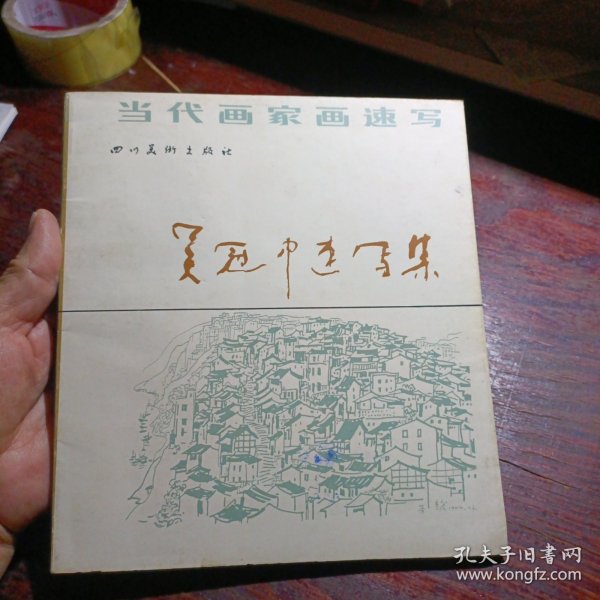 当代画家画速写
四川美术出版社
吴冠中速写集
孔夫子旧书网
www.kongfz.com